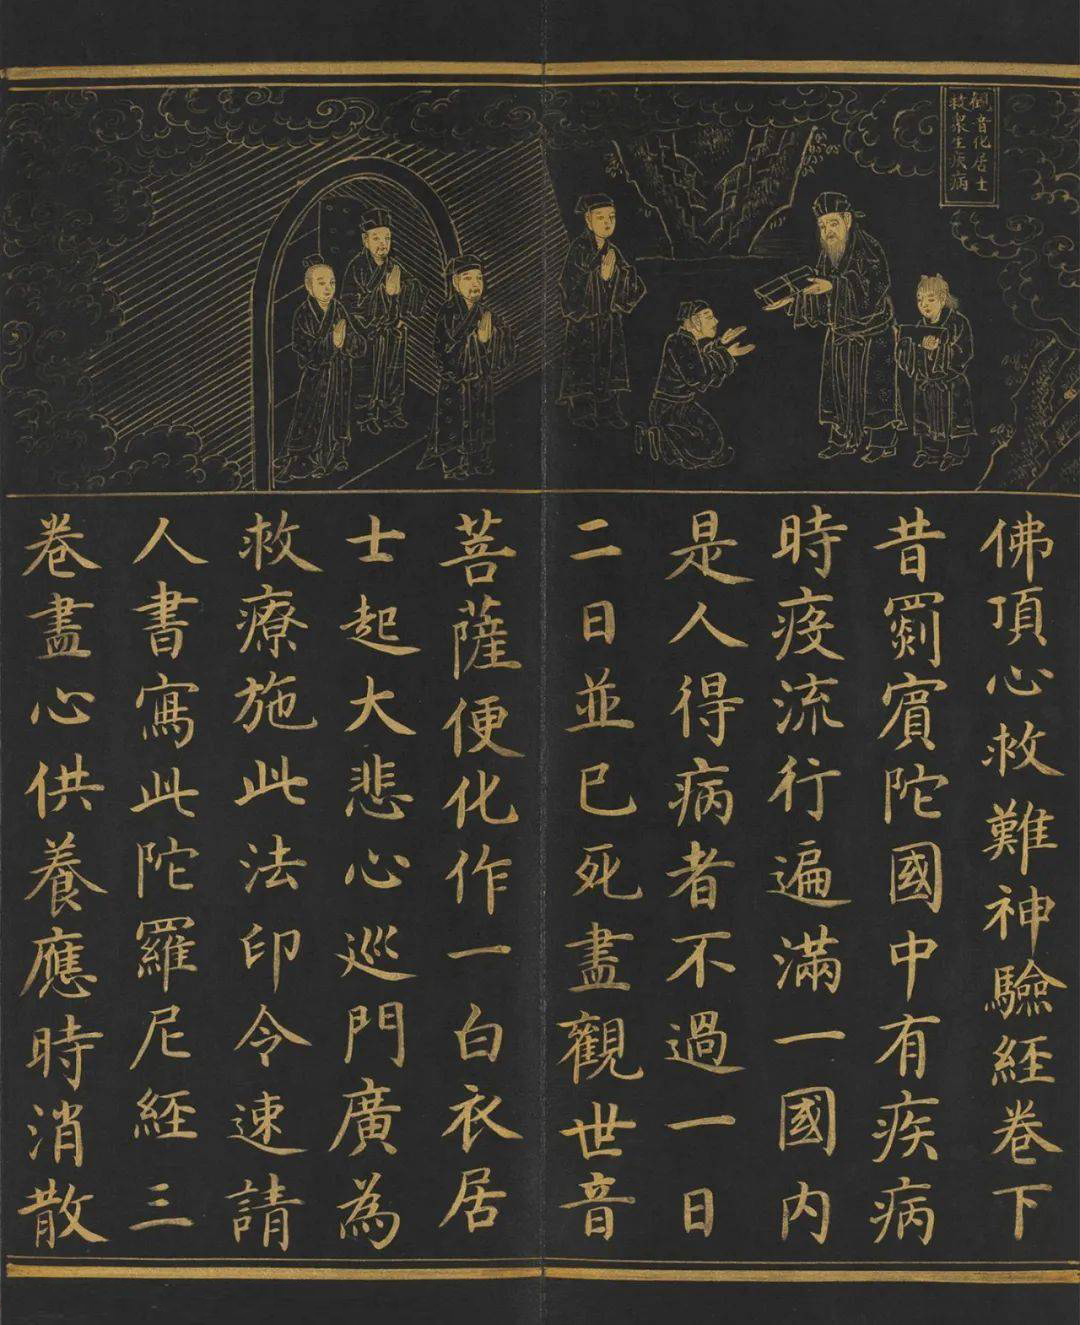 觀音化居士
救眾生疾病
佛頂心救難神驗經卷下
昔罽賓陀國中有疾病
時疫流行遍滿一國內
是人得病者不過一日
二日並已死盡觀世音
菩薩便化作一白衣居
士起大悲心巡門廣為
救療施此法印令速請
人書寫此陀羅尼經三
卷盡心供養應時消散